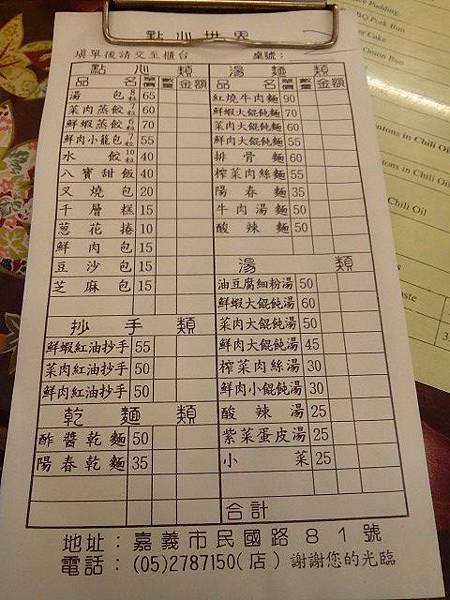 點心世界
填單後請交至櫃台 桌號：
點心類
品名 單價 數量 金額
湯包 8粒 65
菜肉蒸餃 7粒 60
鮮蝦蒸餃 6粒 70
鮮肉小籠包 7粒 55
水餃 10粒 40
八寶甜飯 40
叉燒包 20
千層糕 15
蔥花捲 10
鮮肉包 15
豆沙包 15
芝麻包 15
抄手類
鮮蝦紅油抄手 55
菜肉紅油抄手 50
鮮肉紅油抄手 50
乾麵類
酢醬乾麵 50
陽春乾麵 35
湯麵類
品名 單價 數量 金額
紅燒牛肉麵 90
鮮蝦大餛飩麵 70
菜肉大餛飩麵 60
鮮肉大餛飩麵 55
排骨麵 60
榨菜肉絲麵 50
陽春麵 35
牛肉湯麵 50
酸辣麵 50
湯類
油豆腐細粉湯 50
鮮蝦大餛飩湯 60
菜肉大餛飩湯 50
鮮肉大餛飩湯 45
榨菜肉絲湯 30
鮮肉小餛飩湯 30
酸辣湯 25
紫菜蛋皮湯 25
小菜 25
合計
地址：嘉義市民國路81號
電話：(05)2787150(店) 謝謝您的光臨
Pudding
BQ Pork Bun
Cake
Onion Bun
ntons in Chili Oil
ntons in Chili Oil
Chili Oil